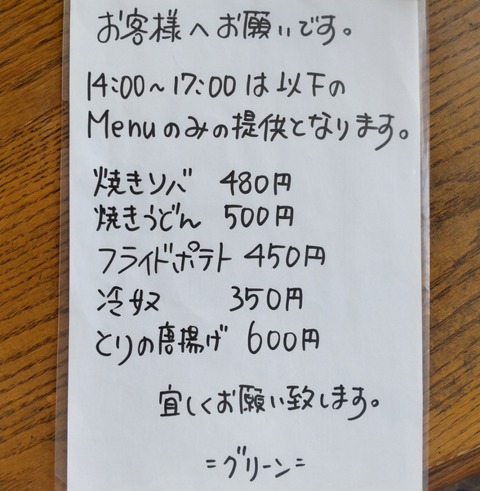 お客様へお願いです。
14:00~17:00は以下の
Menuのみの提供となります。
焼きソバ 480円
焼きうどん 500円
フライドポテト 450円
冷奴 350円
とりの唐揚げ 600円
宜しくお願い致します。
=グリーン=